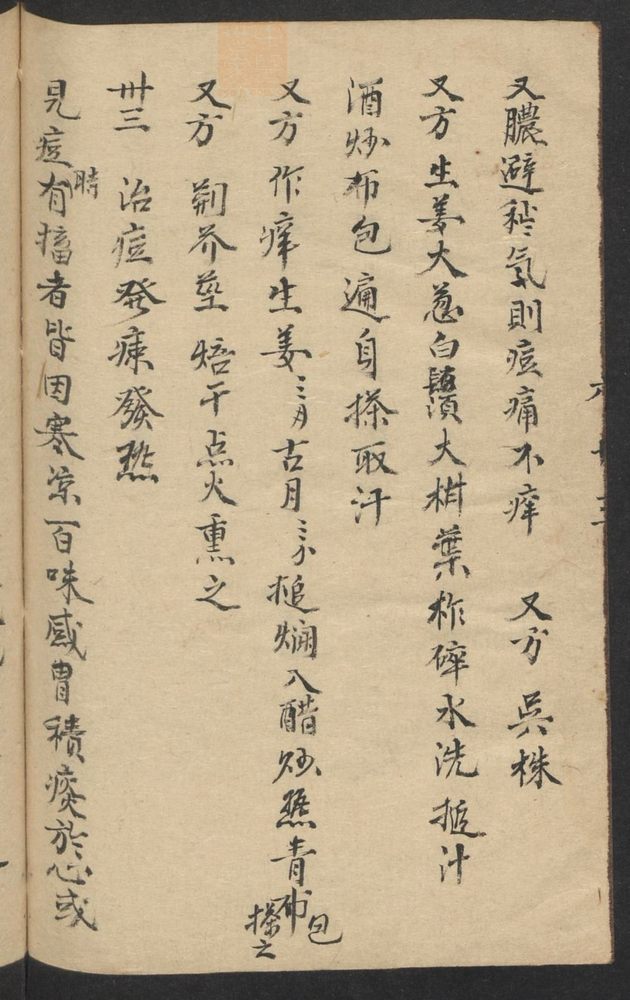 又膿避穢氣則痘痛不痒 又方 吳株
又方生姜大葱白鬚大柑葉柞碎水洗搥汁
酒炒布包遍身搽取汗
又方作痒生姜三月古月三分搥爛入醋炒熱青布包搽之
又方 荆芥莖焙干点火熏之
卅三 治痘發痳發熱
見痘時有搐者皆因寒凉百味感冒積痰於心或